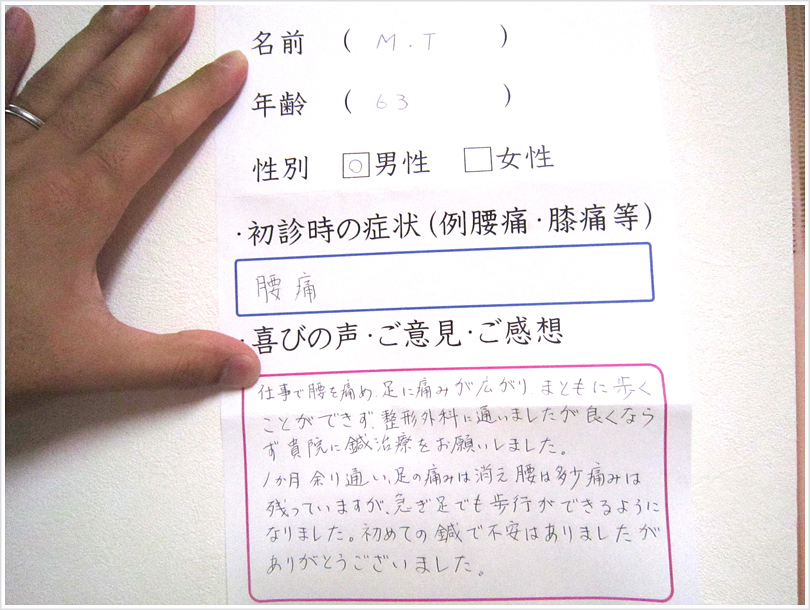 名前 ( M.T )
年齢 ( 63 )
性別 ☑男性 □女性
・初診時の症状(例腰痛・膝痛等)
腰痛
・喜びの声・ご意見・ご感想
仕事で腰を痛め、足に痛みが広がり、まともに歩く
ことができず、整形外科に通いましたが良くなら
ず貴院に鍼治療をお願いしました。
1か月余り通い、足の痛みは消え腰は多少痛みは
残っていますが、急ぎ足でも歩行ができるように
なりました。初めての鍼で不安はありましたが
ありがとうございました。